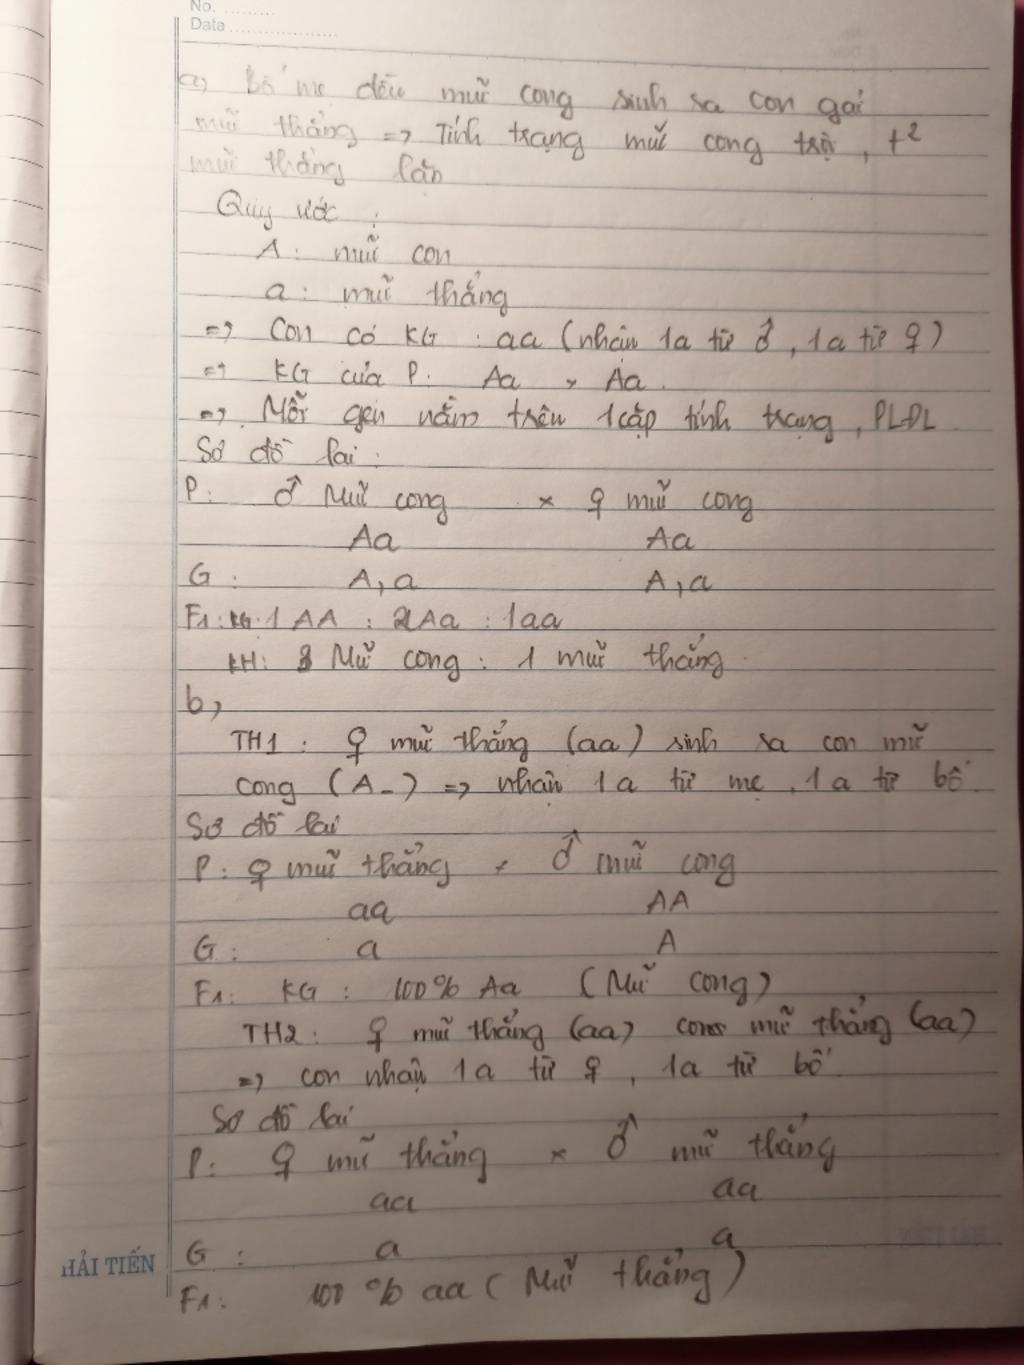 No. .........
Date ...................
a, Bố mẹ đều mũi cong sinh sa con gái
mũi thẳng => Tính trạng mũi cong trội, t²
mũi thẳng lặn
Quy ước :
A : mũi con
a : mũi thẳng
=> Con có KG : aa (nhận 1a từ ♂, 1a từ ♀)
=> KG của P: Aa × Aa.
=> Mỗi gen nằm trên 1 cặp tính trạng, PLĐL
Sơ đồ lai :
P: ♂ Mũi cong × ♀ mũi cong
Aa Aa
G : A, a A, a
F1: KG: 1 AA : 2Aa : 1aa
KH: 3 Mũi cong : 1 mũi thẳng.
b,
TH1 : ♀ mũi thẳng (aa) sinh sa con mũi
cong (A-) => nhận 1a từ mẹ, 1a từ bố.
Sơ đồ lai
P: ♀ mũi thẳng × ♂ mũi cong
aa AA
G : a A
F1: KG : 100% Aa (Mũi cong)
TH2 : ♀ mũi thẳng (aa) con mũi thẳng (aa)
=> con nhận 1a từ ♀, 1a từ bố.
Sơ đồ lai
P: ♀ mũi thẳng × ♂ mũi thẳng
aa aa
G : a a
HẢI TIẾN
F1: 100 % aa (Mũi thẳng)